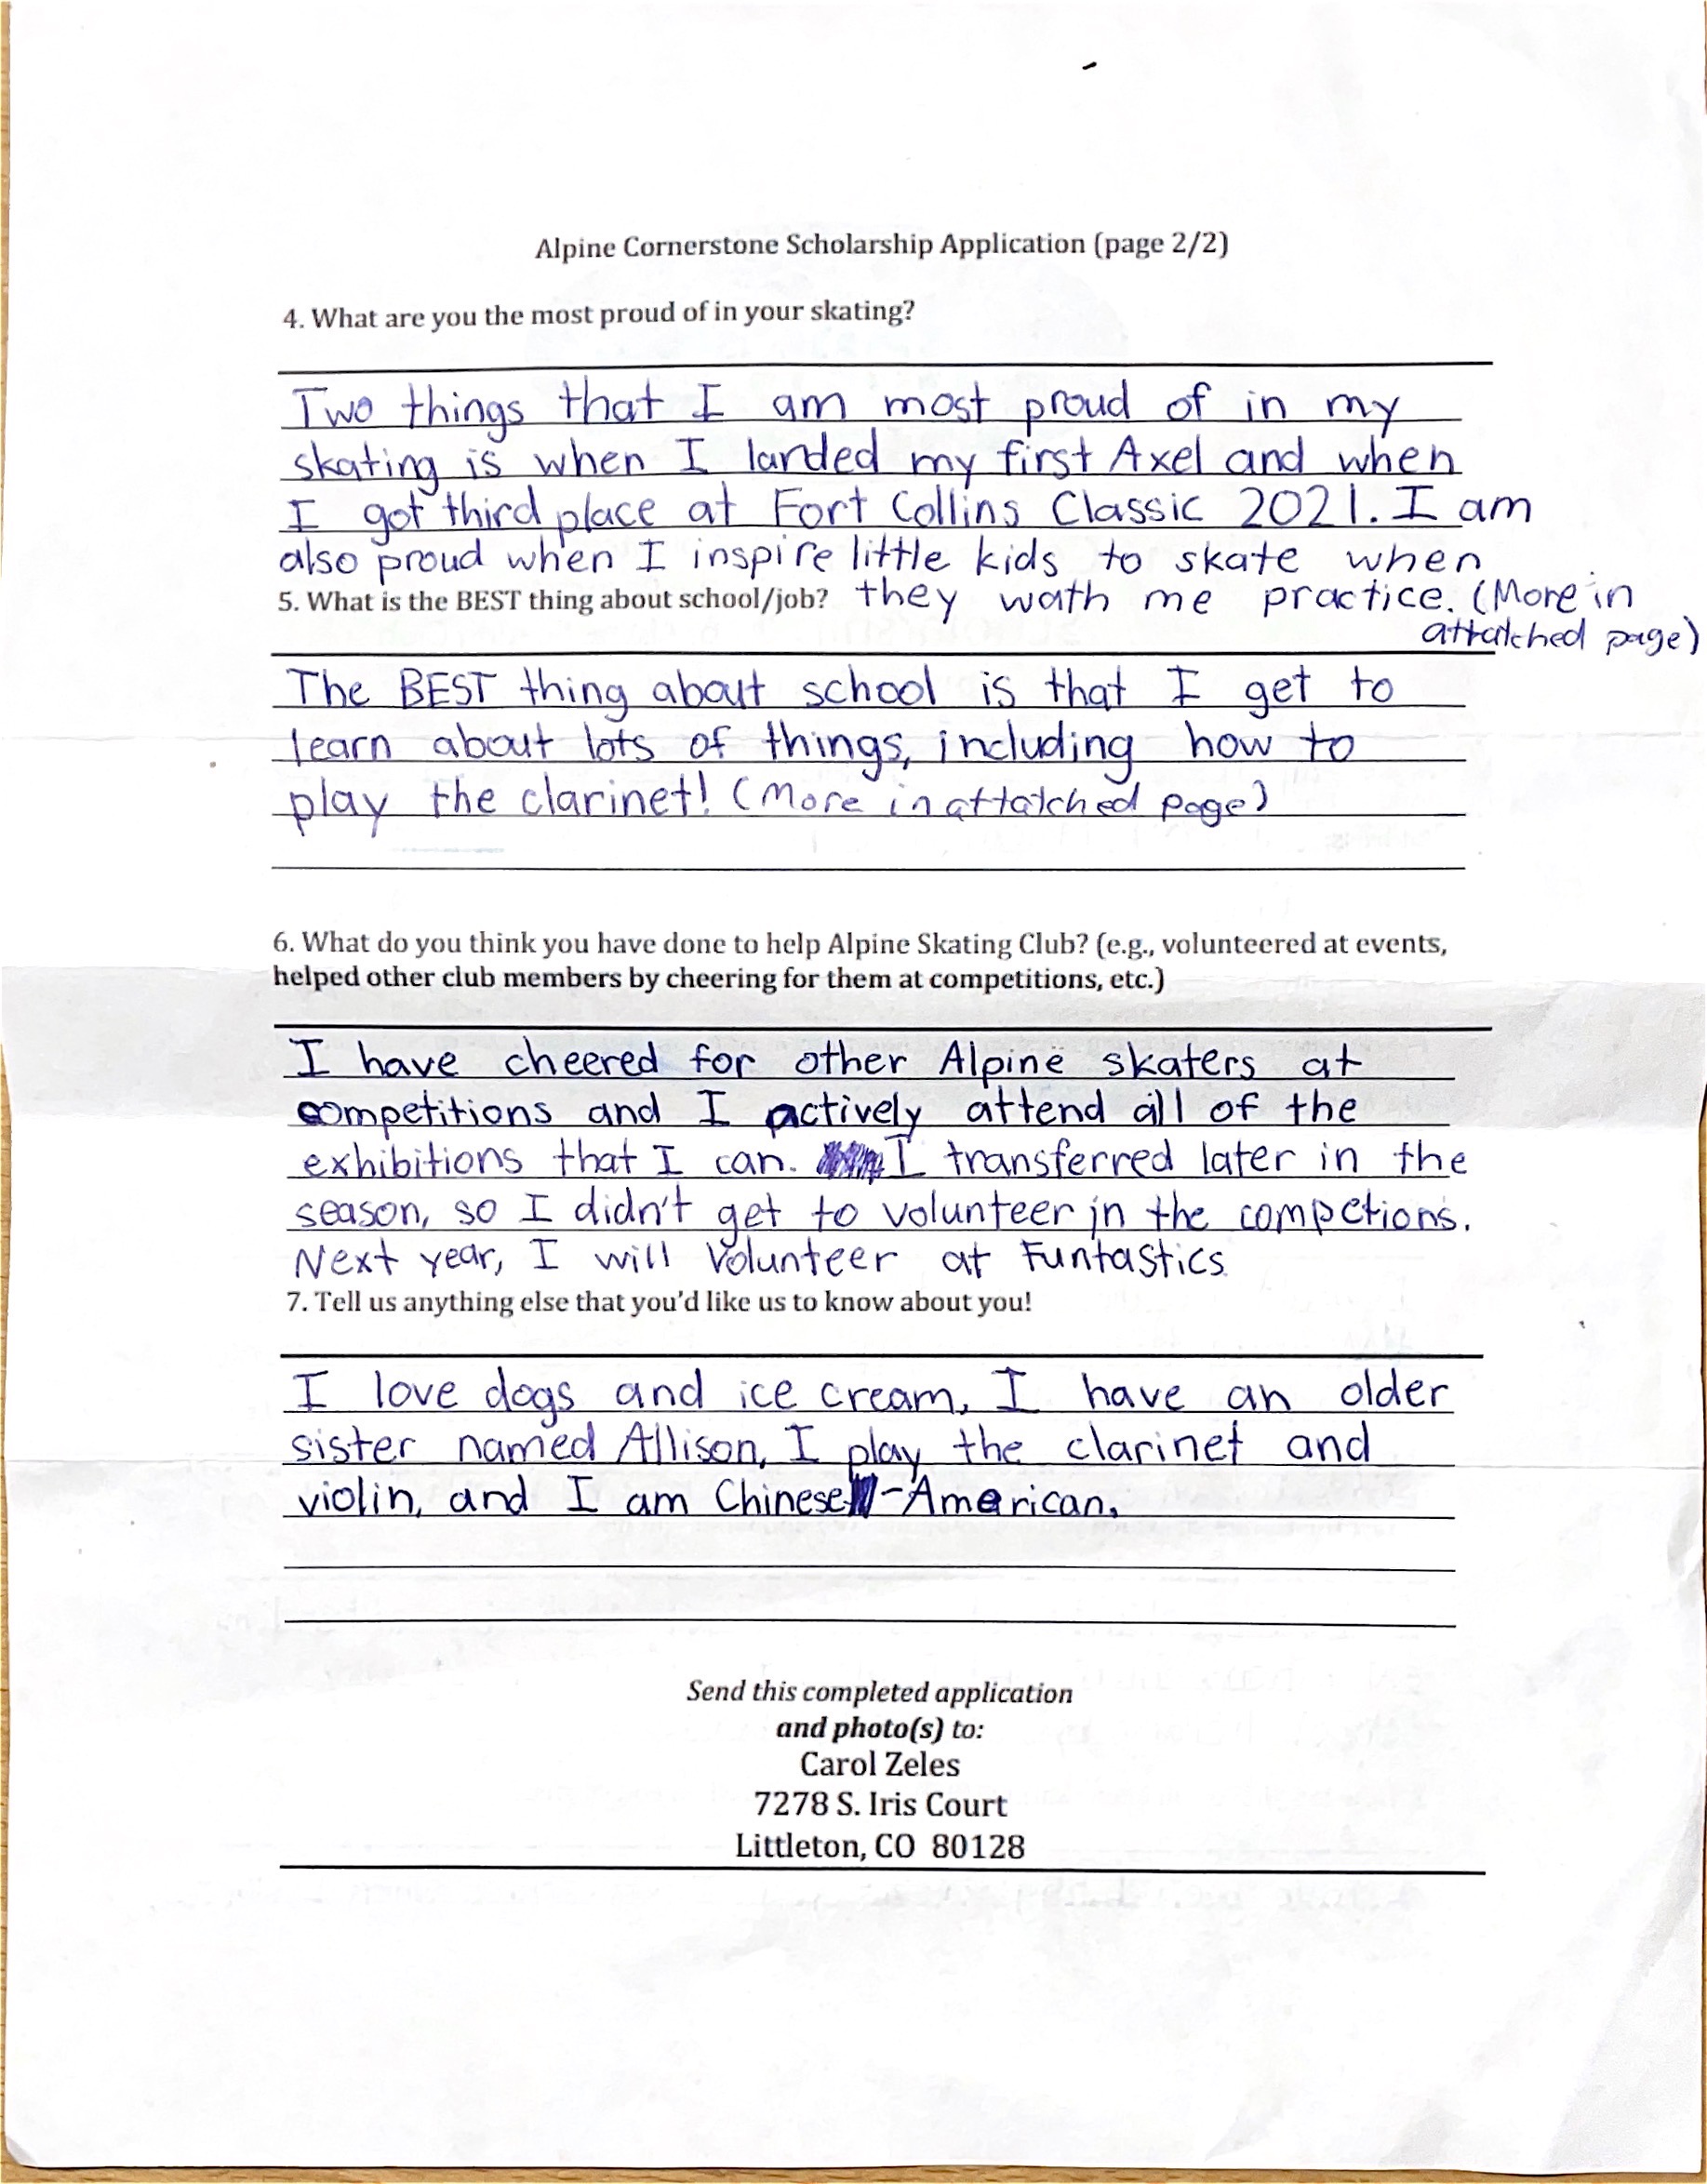 Alpine Cornerstone Scholarship Application (page 2/2)
4. What are you the most proud of in your skating?
Two things that I am most proud of in my
skating is when I landed my first Axel and when
I got third place at Fort Collins Classic 2021. I am
also proud when I inspire little kids to skate when
5. What is the BEST thing about school/job? they wath me practice. (More in
attatched page)
The BEST thing about school is that I get to
learn about lots of things, including how to
play the clarinet! (More in attatched page)
6. What do you think you have done to help Alpine Skating Club? (e.g., volunteered at events,
helped other club members by cheering for them at competitions, etc.)
I have cheered for other Alpine skaters at
competitions and I actively attend all of the
exhibitions that I can. I transferred later in the
season, so I didn't get to volunteer in the competions.
Next year, I will Volunteer at Funtastics
7. Tell us anything else that you'd like us to know about you!
I love dogs and ice cream, I have an older
sister named Allison, I play the clarinet and
violin, and I am Chinese-American.
Send this completed application
and photo(s) to:
Carol Zeles
7278 S. Iris Court
Littleton, CO 80128